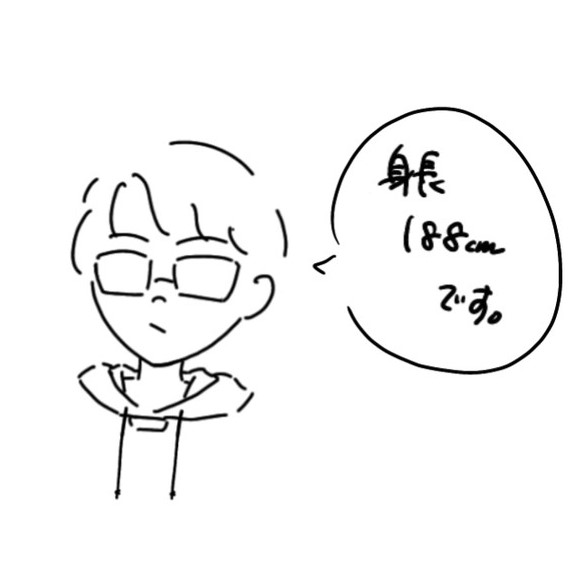 身長
188cm
です。